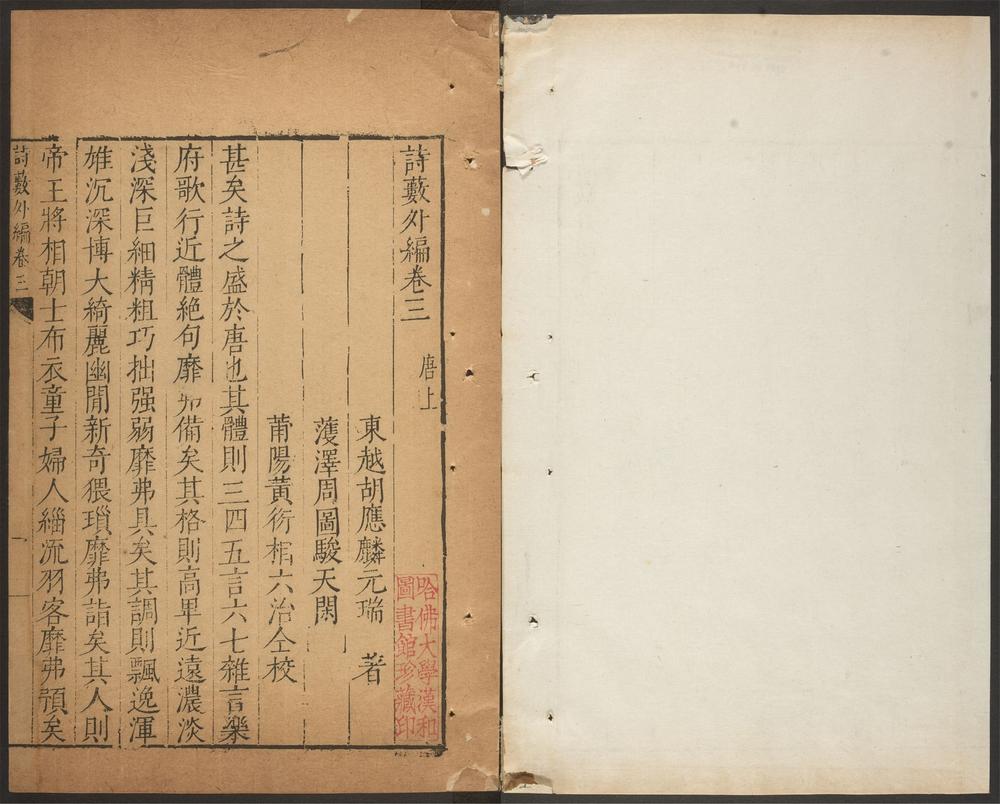 詩藪外編卷三　唐上
東越胡應麟元瑞　著
濩澤周圖駿天閑
莆陽黃衍相六治仝校
甚矣詩之盛於唐也其體則三四五言六七雜言樂
府歌行近體絶句靡弗備矣其格則高卑近遠濃淡
淺深巨細精粗巧拙强弱靡弗具矣其調則飄逸渾
雄沉深博大綺麗幽閒新奇猥瑣靡弗詣矣其人則
帝王將相朝士布衣童子婦人緇流羽客靡弗預矣
詩藪外編卷三
一
哈佛大學漢和
圖書館珍藏印